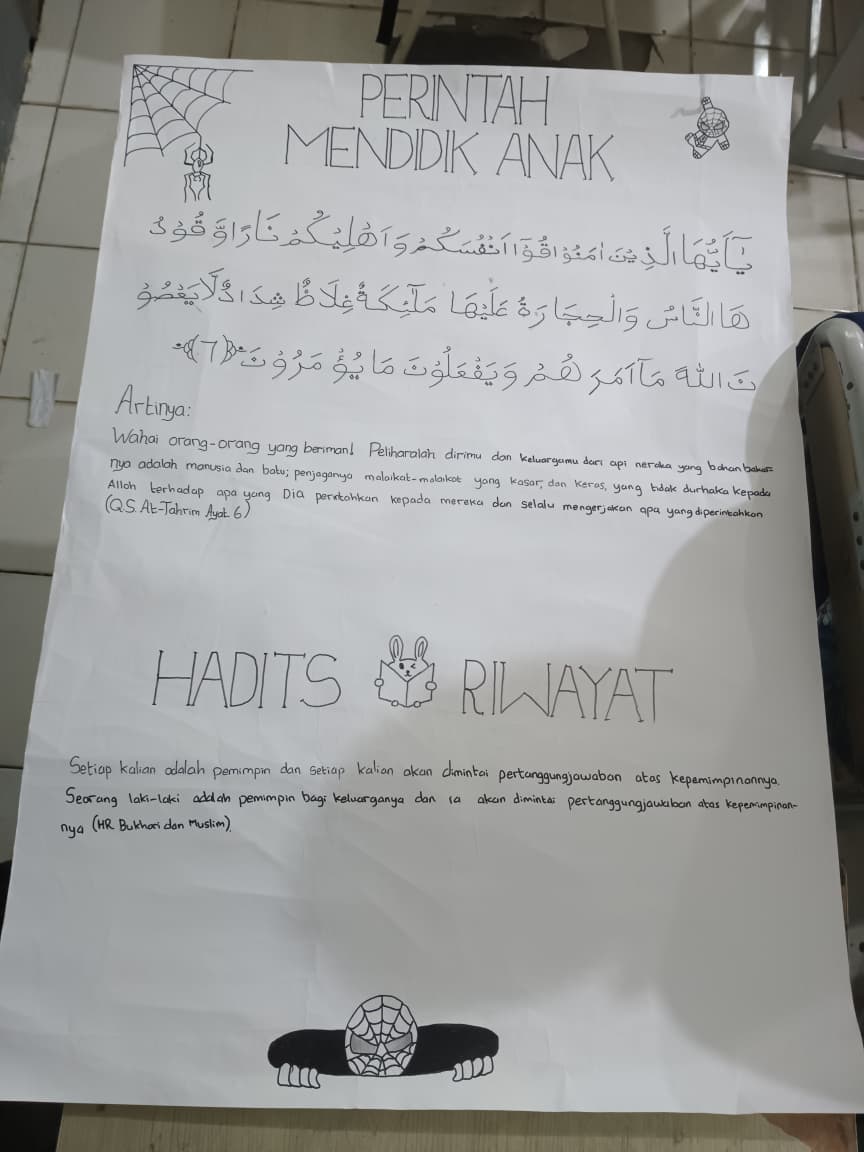 PERINTAH
MENDIDIK ANAK
يٰٓاَيُّهَا الَّذِيْنَ اٰمَنُوْا قُوْٓا اَنْفُسَكُمْ وَاَهْلِيْكُمْ نَارًا وَّقُوْدُ
هَا النَّاسُ وَالْحِجَارَةُ عَلَيْهَا مَلٰۤىِٕكَةٌ غِلَاظٌ شِدَادٌ لَّا يَعْصُوْ
نَ اللّٰهَ مَآ اَمَرَ هُمْ وَيَفْعَلُوْنَ مَا يُؤْ مَرُوْنَ (٦)
Artinya:
Wahai orang-orang yang beriman! Peliharalah dirimu dan keluargamu dari api neraka yang bahan bakar-
nya adalah manusia dan batu; penjaganya malaikat-malaikat yang kasar, dan keras, yang tidak durhaka kepada
Allah terhadap apa yang Dia perintahkan kepada mereka dan selalu mengerjakan apa yang diperintahkan
(Q.S. At-Tahrim Ayat 6)
HADITS RIWAYAT
Setiap kalian adalah pemimpin dan setiap kalian akan dimintai pertanggungjawaban atas kepemimpinannya.
Seorang laki-laki adalah pemimpin bagi keluarganya dan ia akan dimintai pertanggungjawaban atas kepemimpinan-
nya (HR Bukhari dan Muslim).